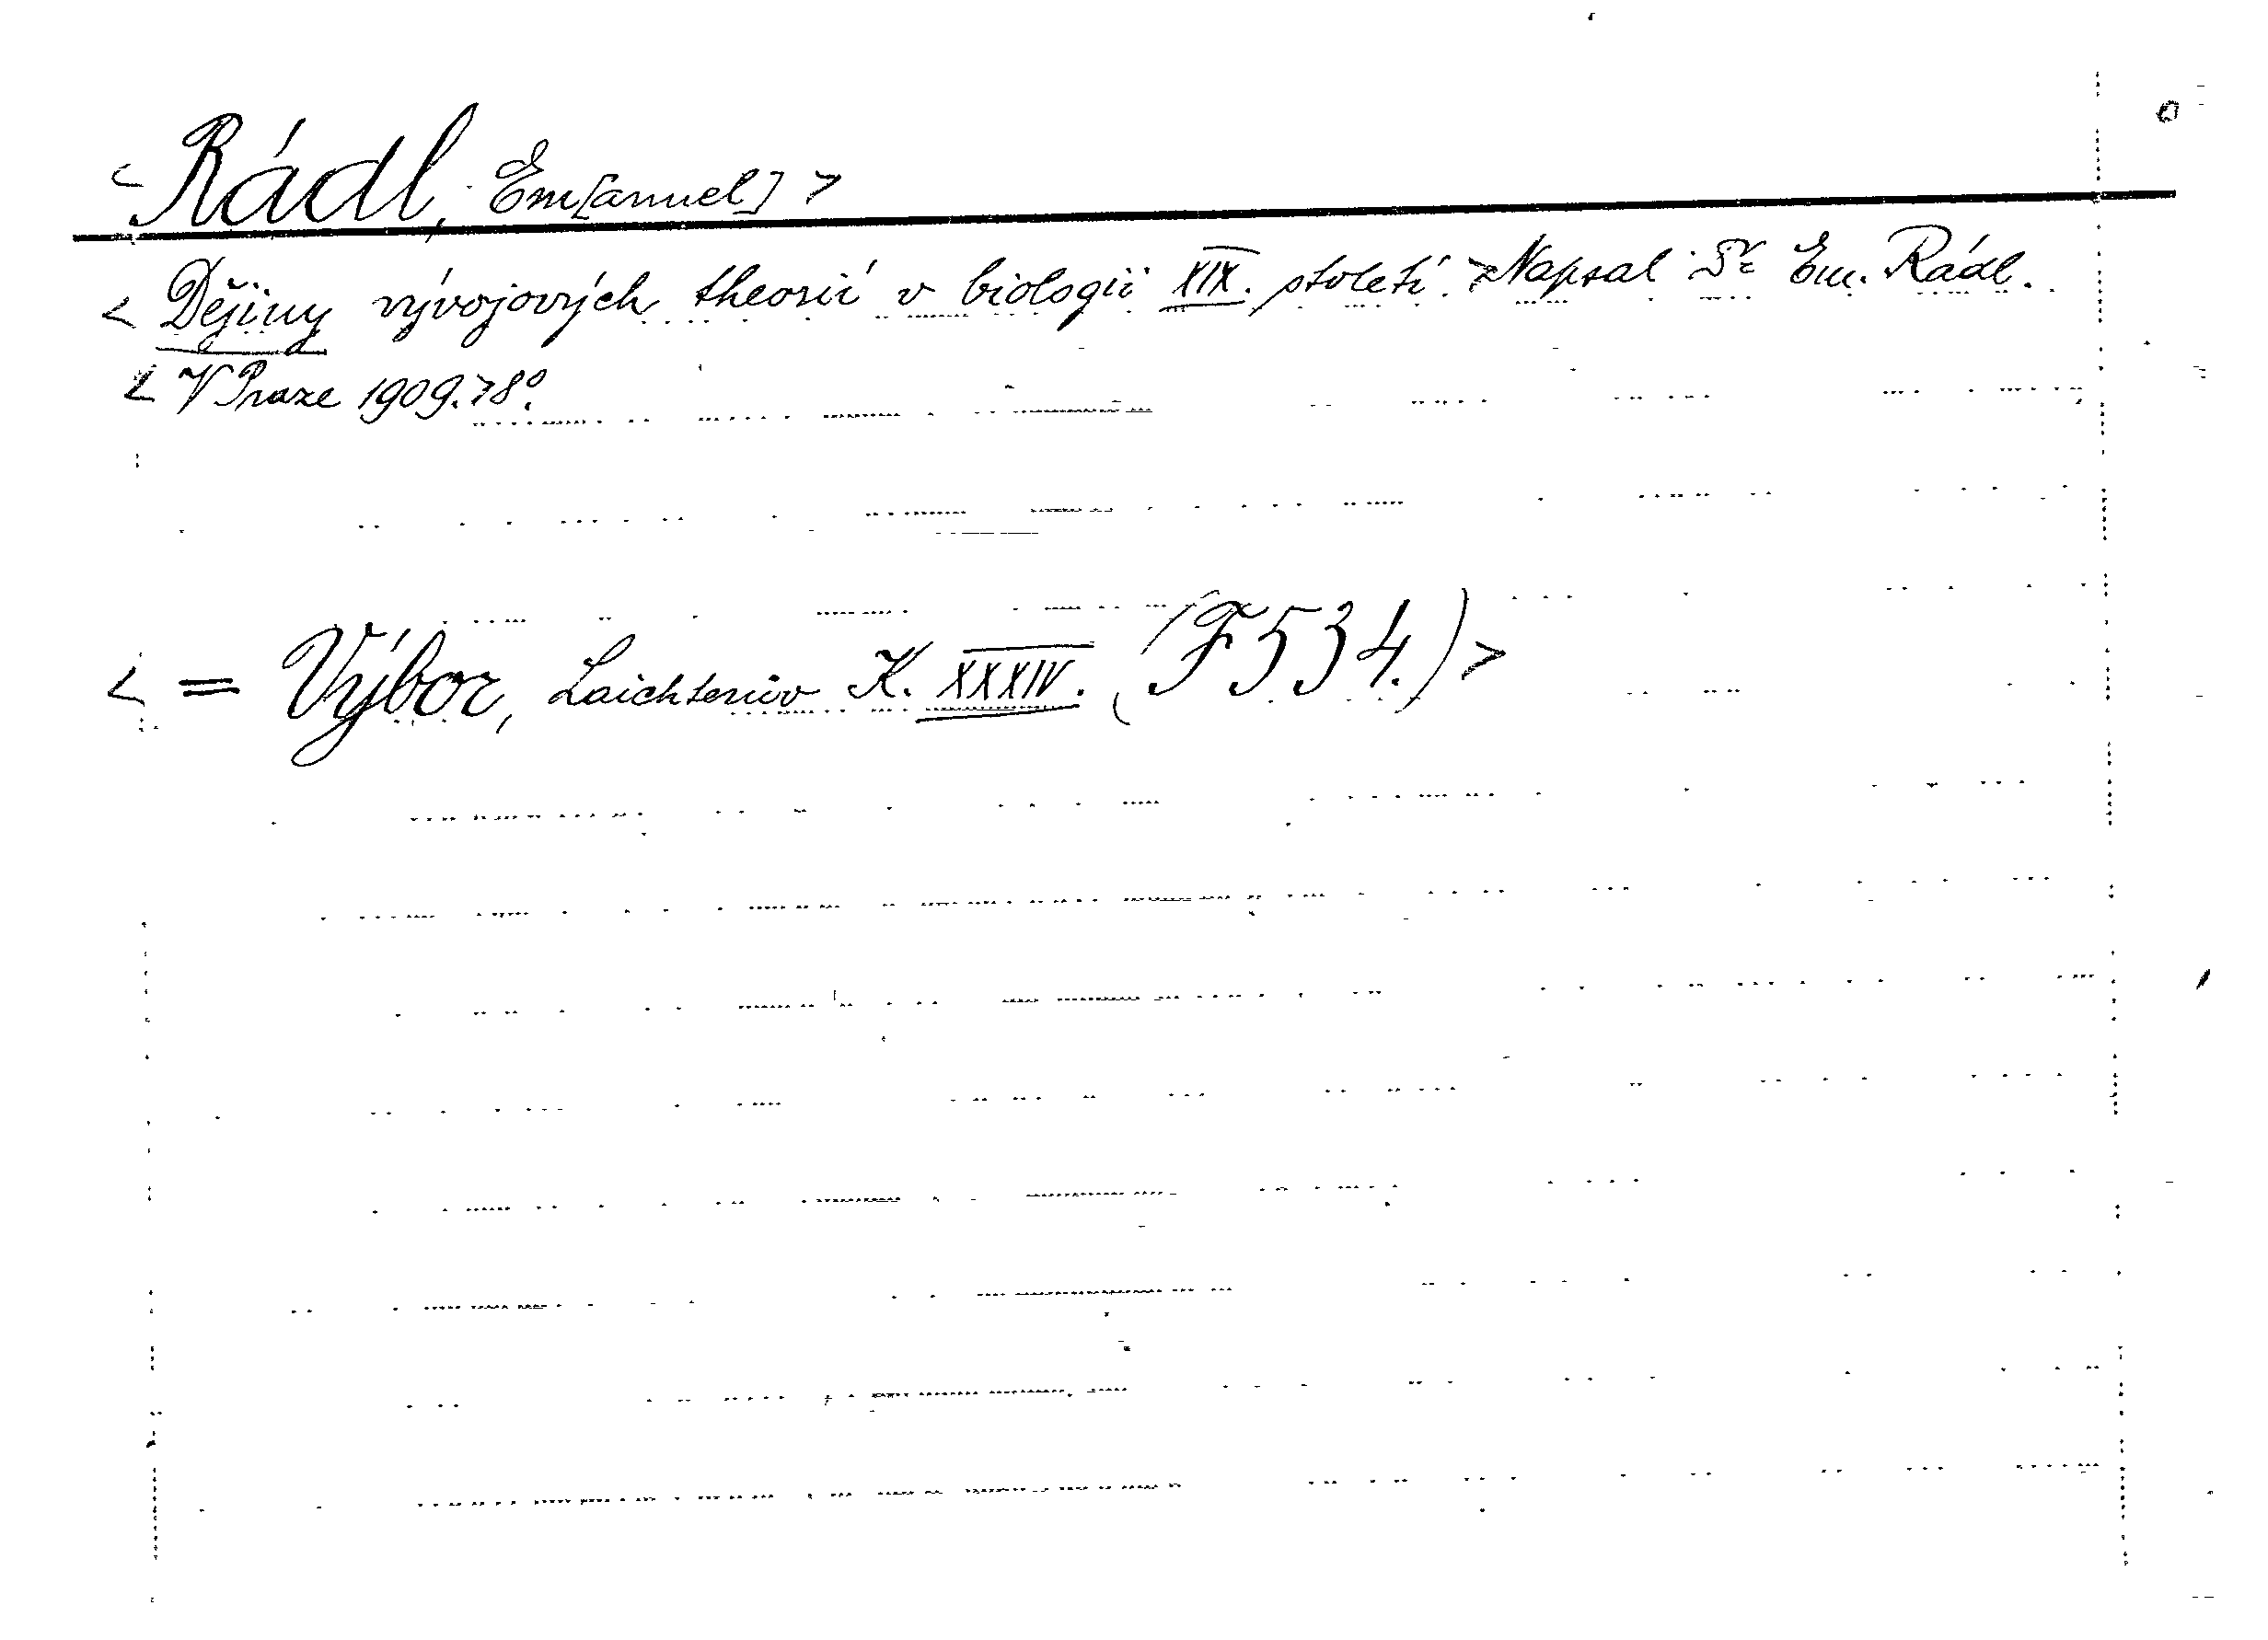 < Rádl, Em[anuel] >
< Dějiny vývojových theorií v biologii XIX. století. > Napsal Dr Em. Rádl.
< V Praze 1909. > 8º.
< = Výbor, Laichterův K. XXXIV. (F 534.) >